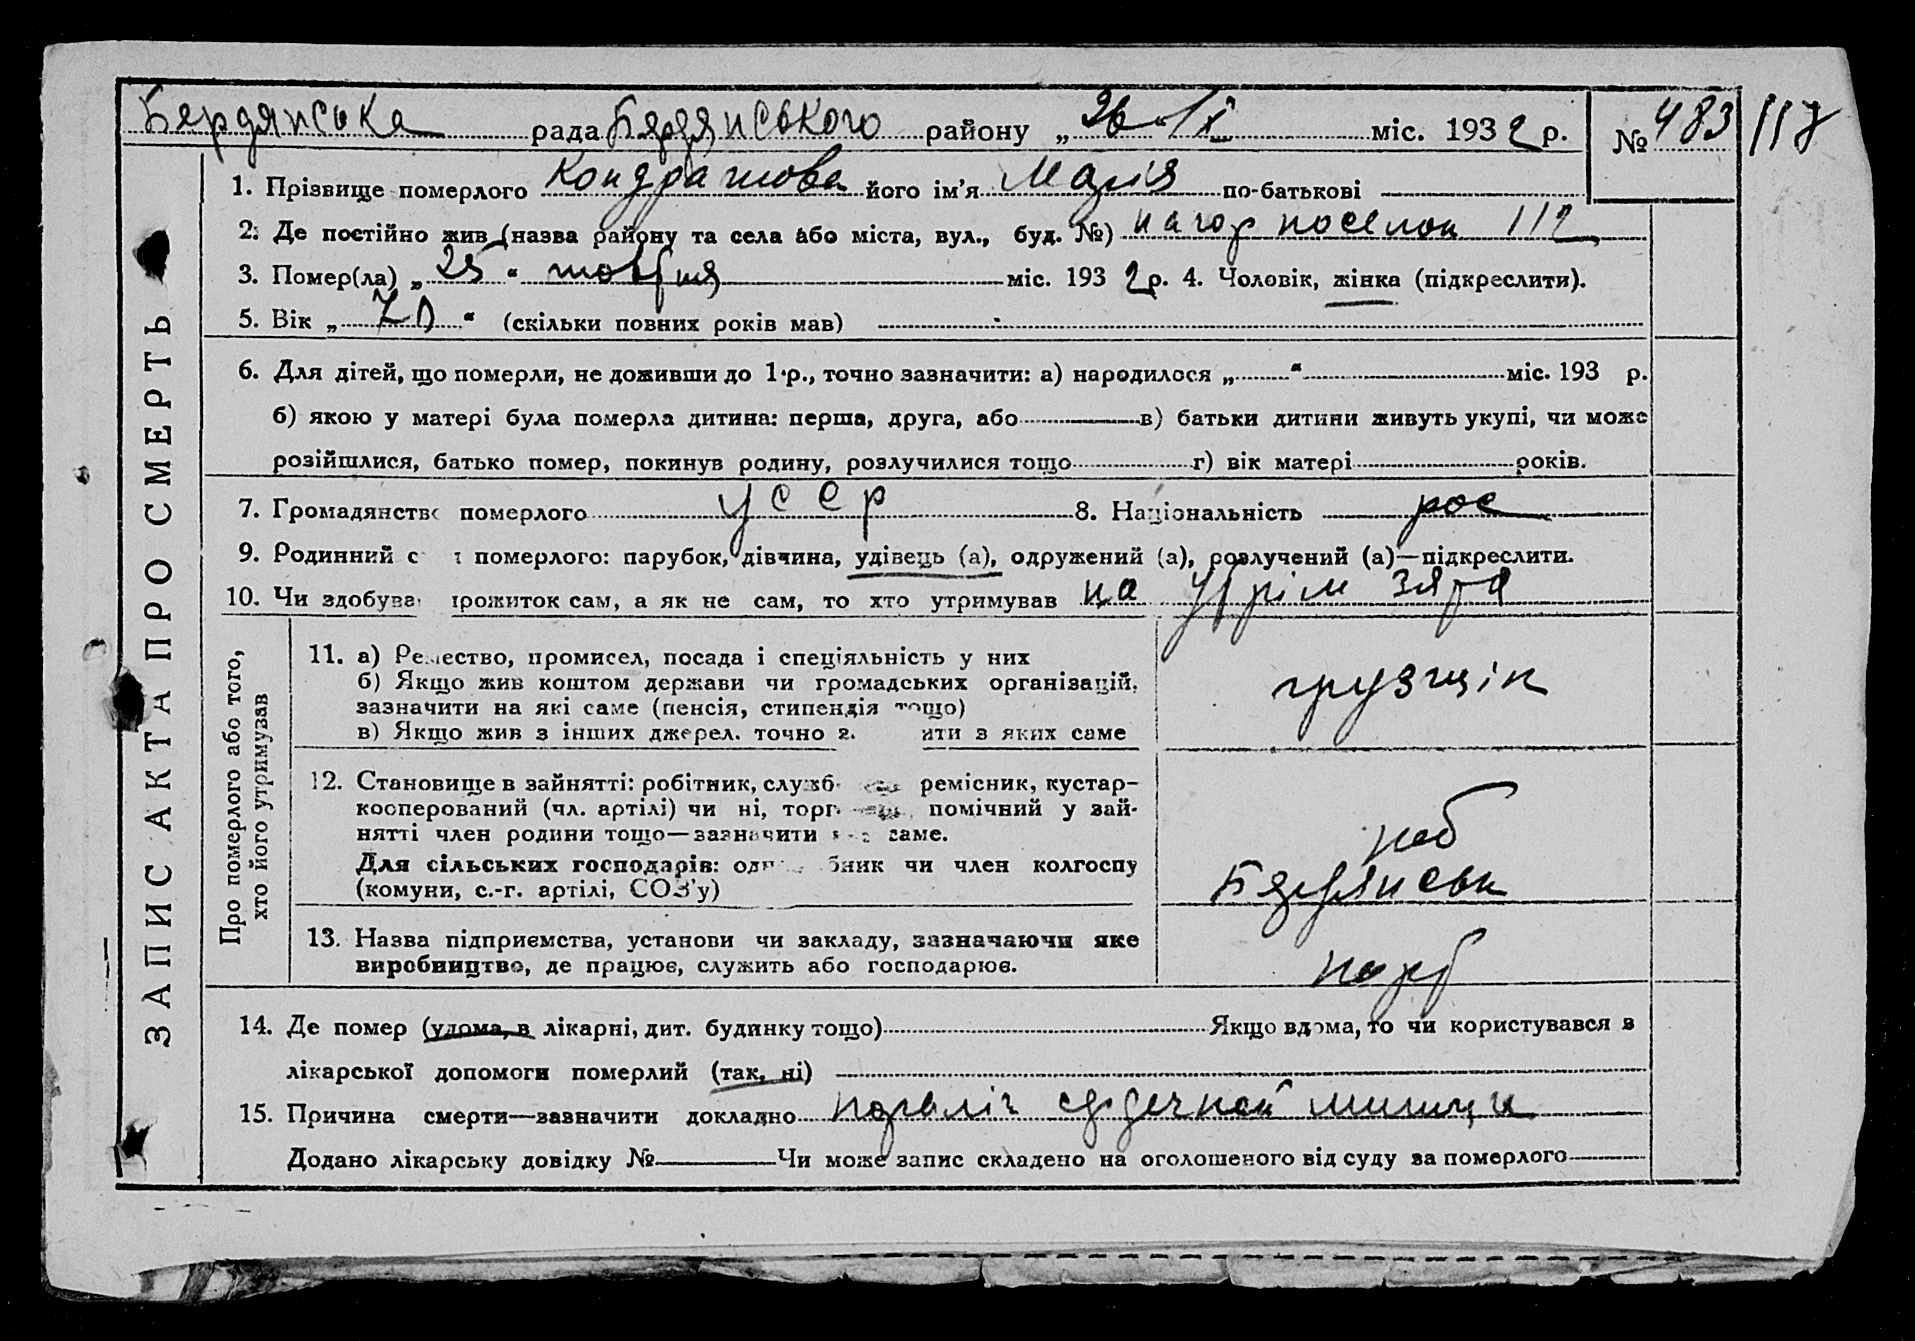 Бердянська рада Бердянського району „26“ ІХ міс. 1932 р. № 483 117
1. Прізвище померлого Кондрашова його ім'я Марія по-батькові
2. Де постійно жив (назва району та села або міста, вул., буд. №) нагор поселок 112
3. Помер(ла) „25“ жовтня міс. 1932 р. 4. Чоловік, жінка (підкреслити).
5. Вік „70“ (скільки повних років мав)
6. Для дітей, що померли, не доживши до 1 р., точно зазначити: а) народилося „ “ міс. 193 р.
б) якою у матері була померла дитина: перша, друга, або в) батьки дитини живуть укупі, чи може
розійшлися, батько помер, покинув родину, розлучилися тощо г) вік матері років.
7. Громадянство померлого УССР 8. Національність рос
9. Родинний с померлого: парубок, дівчина, удівець (а), одружений (а), розлучений (а)—підкреслити.
10. Чи здобував прожиток сам, а як не сам, то хто утримував на утрім зятя
ЗАПИС АКТА ПРО СМЕРТЬ
Про померлого або того,
хто його утримував
11. а) Ремество, промисел, посада і спеціяльність у них
б) Якщо жив коштом держави чи громадських організацій,
зазначити на які саме (пенсія, стипендія тощо)
в) Якщо жив з інших джерел, точно з ити з яких саме
грузщік
12. Становище в зайнятті: робітник, службо ремісник, кустар-
кооперований (чл. артілі) чи ні, торг помічний у зай-
нятті член родини тощо—зазначити саме.
Для сільських господарів: одн бник чи член колгоспу
(комуни, с.-г. артілі, СОЗ'у)
роб
Бердянськ
13. Назва підприємства, установи чи закладу, зазначаючи яке
виробництво, де працює, служить або господарює.
порт
14. Де помер (удома, в лікарні, дит. будинку тощо) Якщо вдома, то чи користувався з
лікарської допомоги померлий (так, ні)
15. Причина смерти—зазначити докладно параліч сердечной мишци
Додано лікарську довідку № Чи може запис складено на оголошеного від суду за померлого